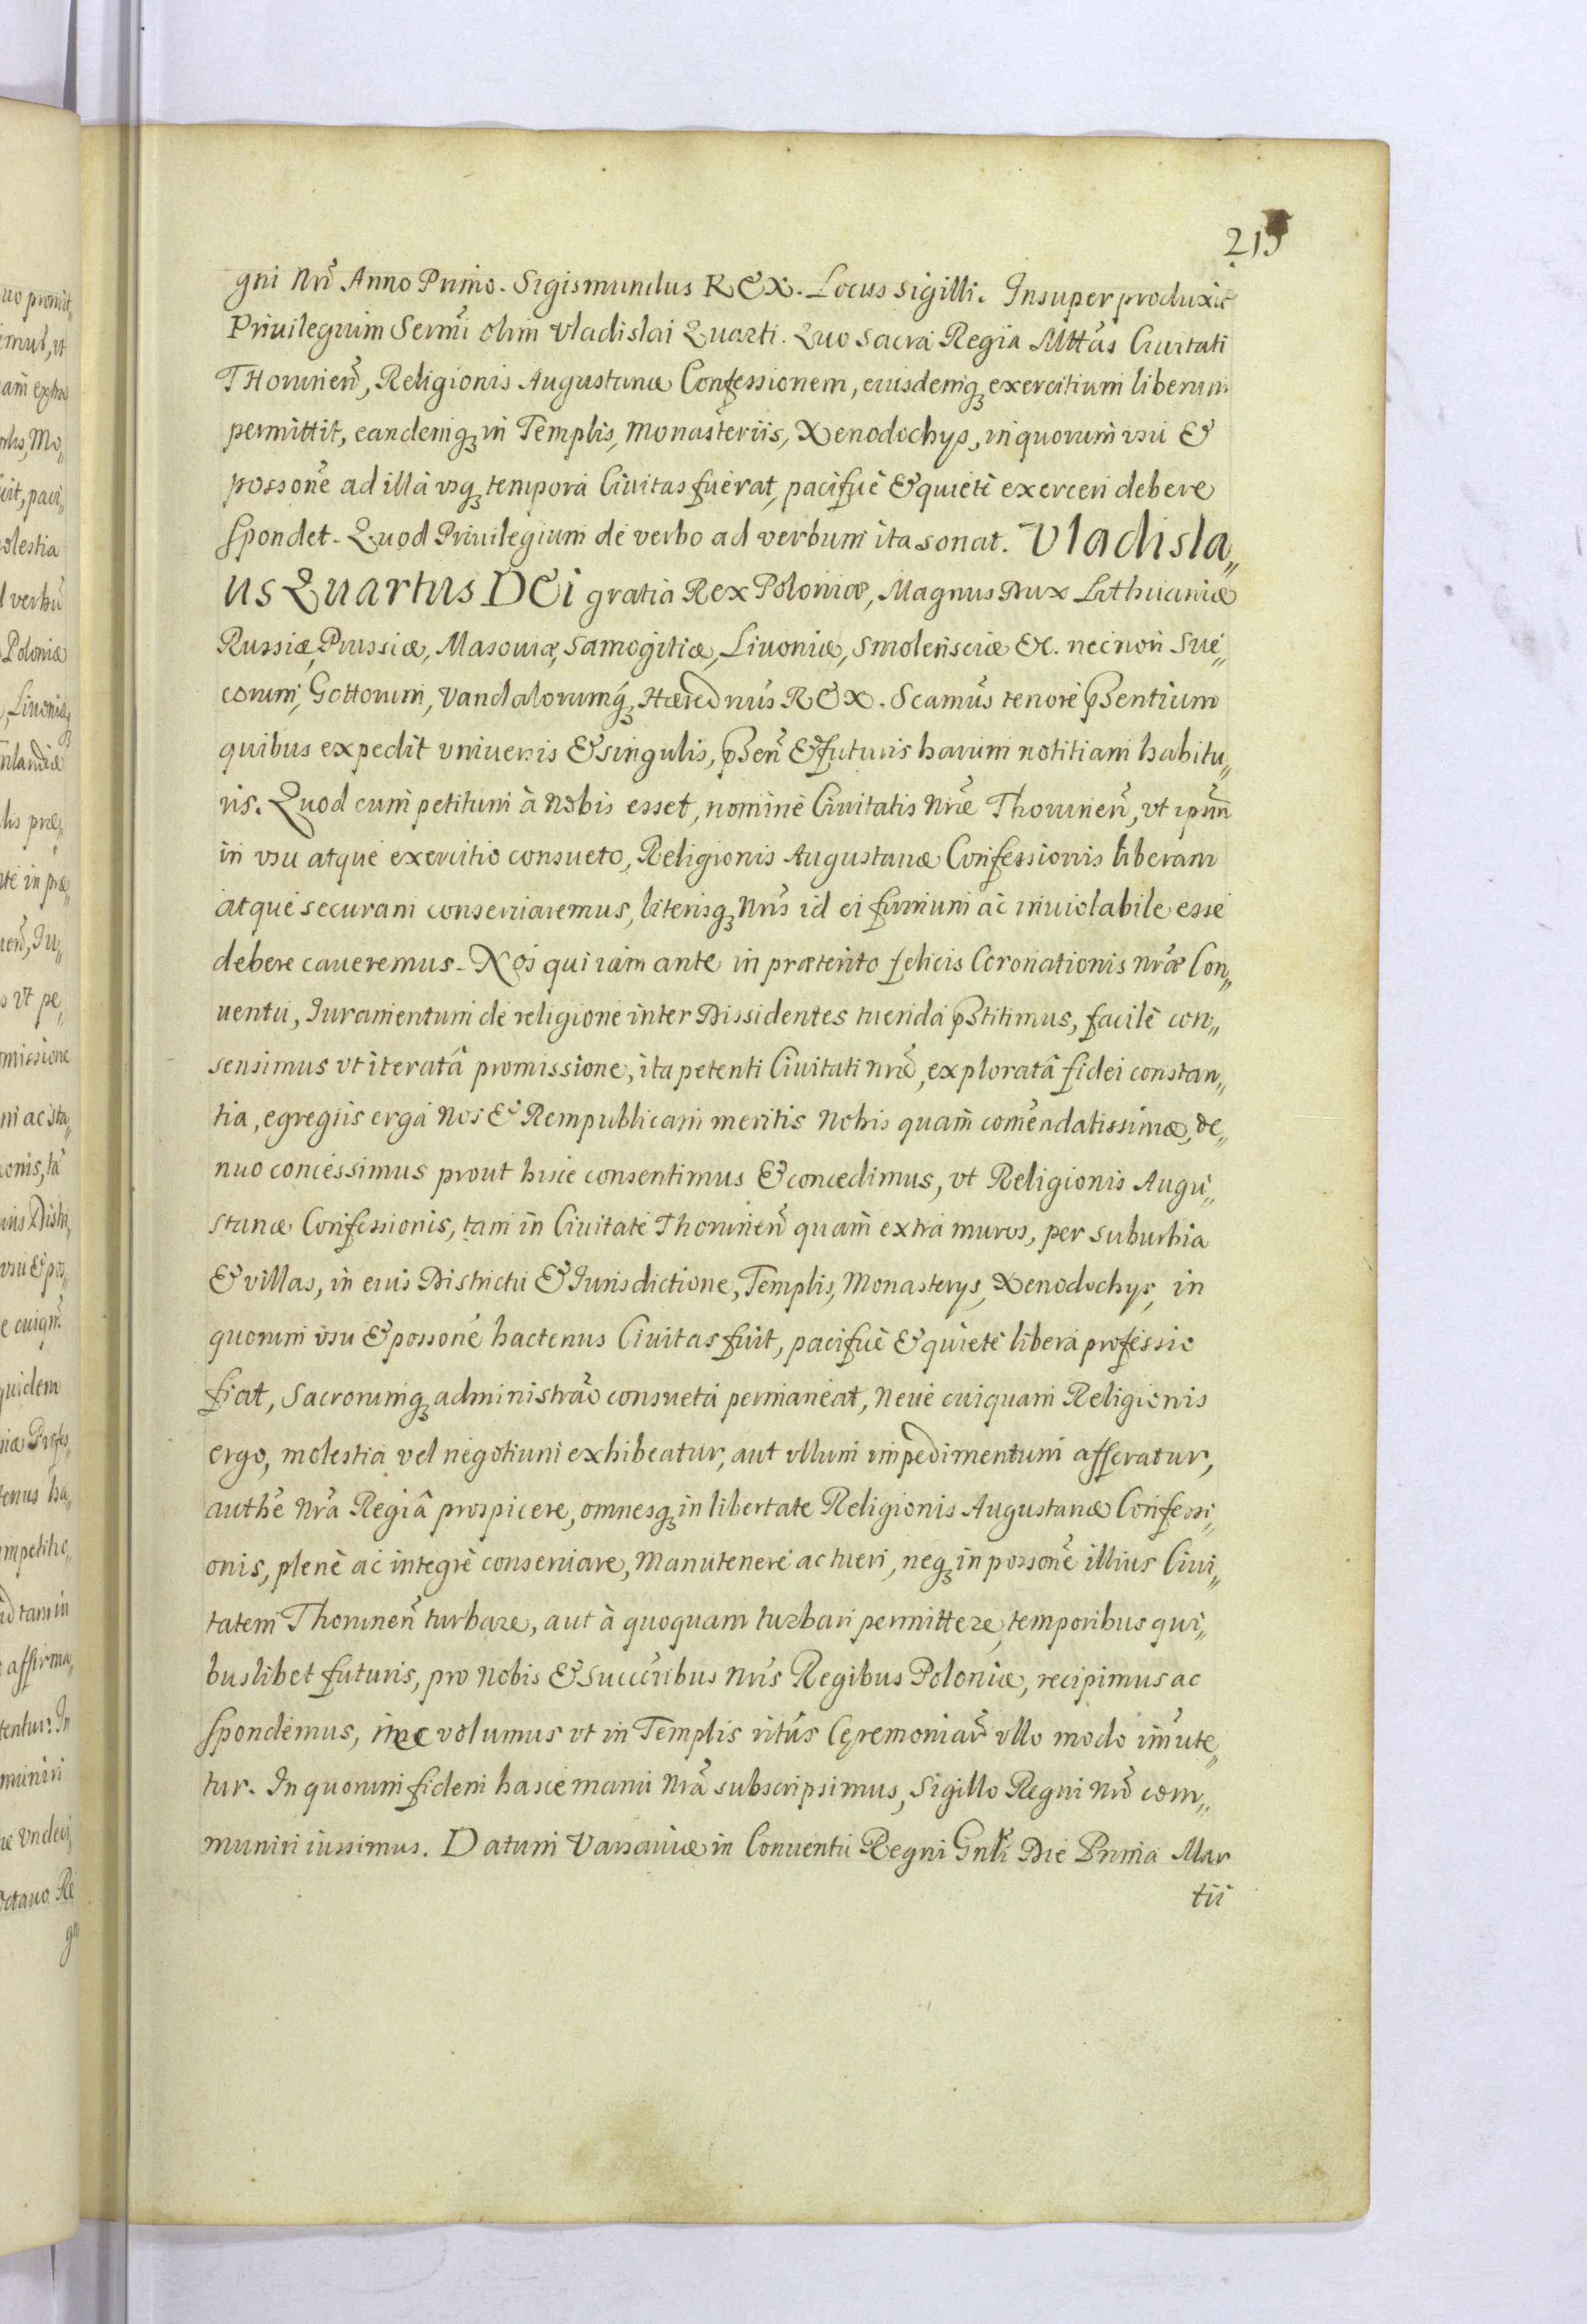 215
gni Nrĩ Anno Primo. Sigismundus REX. Locus sigilli. Insuper produxit
Priuilegium Sermĩ olim Vladislai Quarti. Quo Sacra Regia Mttãs Ciuitati
THoruneñ, Religionis Augustanæ Confessionem, eiusdemq; exercitium liberum
permittit, eandemq; in Templis, Monasteriis, Xenodochys, in quorum vsu &
possone ad illa vsq; tempora Ciuitas fuerat, pacificè & quietè exerceri debere
spondet. Quod Priuilegium de verbo ad verbum ita sonat. Vladisla„
us Quartus DEi gratia Rex Poloniæ, Magnus Dux Lithuaniæ
Russiæ, Prussiæ, Masouiæ, Samogitiæ, Liuoniæ, Smolensciæ &c. necnon Sue„
corum, Gottorum, Vandalorumq; Hæred nus REX. Scamus tenore p̃sentium
quibus expedit vniuersis & singulis, p̃señ & futuris harum notitiam habitu„
ris. Quod cum petitum à Nobis esset, nomine Ciuitatis Nræ Thoruneñ, vt ipsm̃
in vsu atque exercitio consueto, Religionis Augustanæ Confessionis liberam
atque securam conseruaremus, literisq; Nris id ei firmum ac inuiolabile esse
debere caueremus. Nos qui iam ante in præterito felicis Coronationis Nræ Con„
uentu, Iuramentum de religione inter Dissidentes tuenda p̃stitimus, facilè con„
sensimus vt iteratâ promissione, ita petenti Ciuitati Nræ, exploratâ fidei constan„
tia, egregiis erga Nos & Rempublicam meritis Nobis quam comẽndatissimæ, de„
nuo concessimus prout hisce consentimus & concedimus, vt Religionis Augu„
stanæ Confessionis, tam in Ciuitate Thoruneñ quam extra muros, per suburbia
& villas, in eius Districtu & Iurisdictione, Templis, Monasterys, Xenodochys, in
quorum vsu & possone hactenus Ciuitas fuit, pacificè & quietè libera professio
fiat, Sacrorumq; administrão consueta permaneat, Neue cuiquam Religionis
ergo, molestia vel negotium exhibeatur, aut vllum impedimentum afferatur,
authẽ Nrâ Regiâ prospicere, omnesq; in libertate Religionis Augustanæ Confessi„
onis, plenè ac integrè conseruare, Manutenere ac tueri, neq; in possone illius Ciui„
tatem Thoruneñ turbare, aut à quoquam turbari permittere, temporibus qui„
buslibet futuris, pro Nobis & Succoribus Nris Regibus Poloniæ, recipimus ac
spondemus, nec volumus vt in Templis ritus Cęremoniar̃ vllo modo im̃ute„
tur. In quorum fidem hasce manu Nrâ subscripsimus, Sigillo Regni Nrĩ com„
muniri iussimus. Datum Varsauiæ in Conuentu Regni Gnli Die Prima Mar
tii